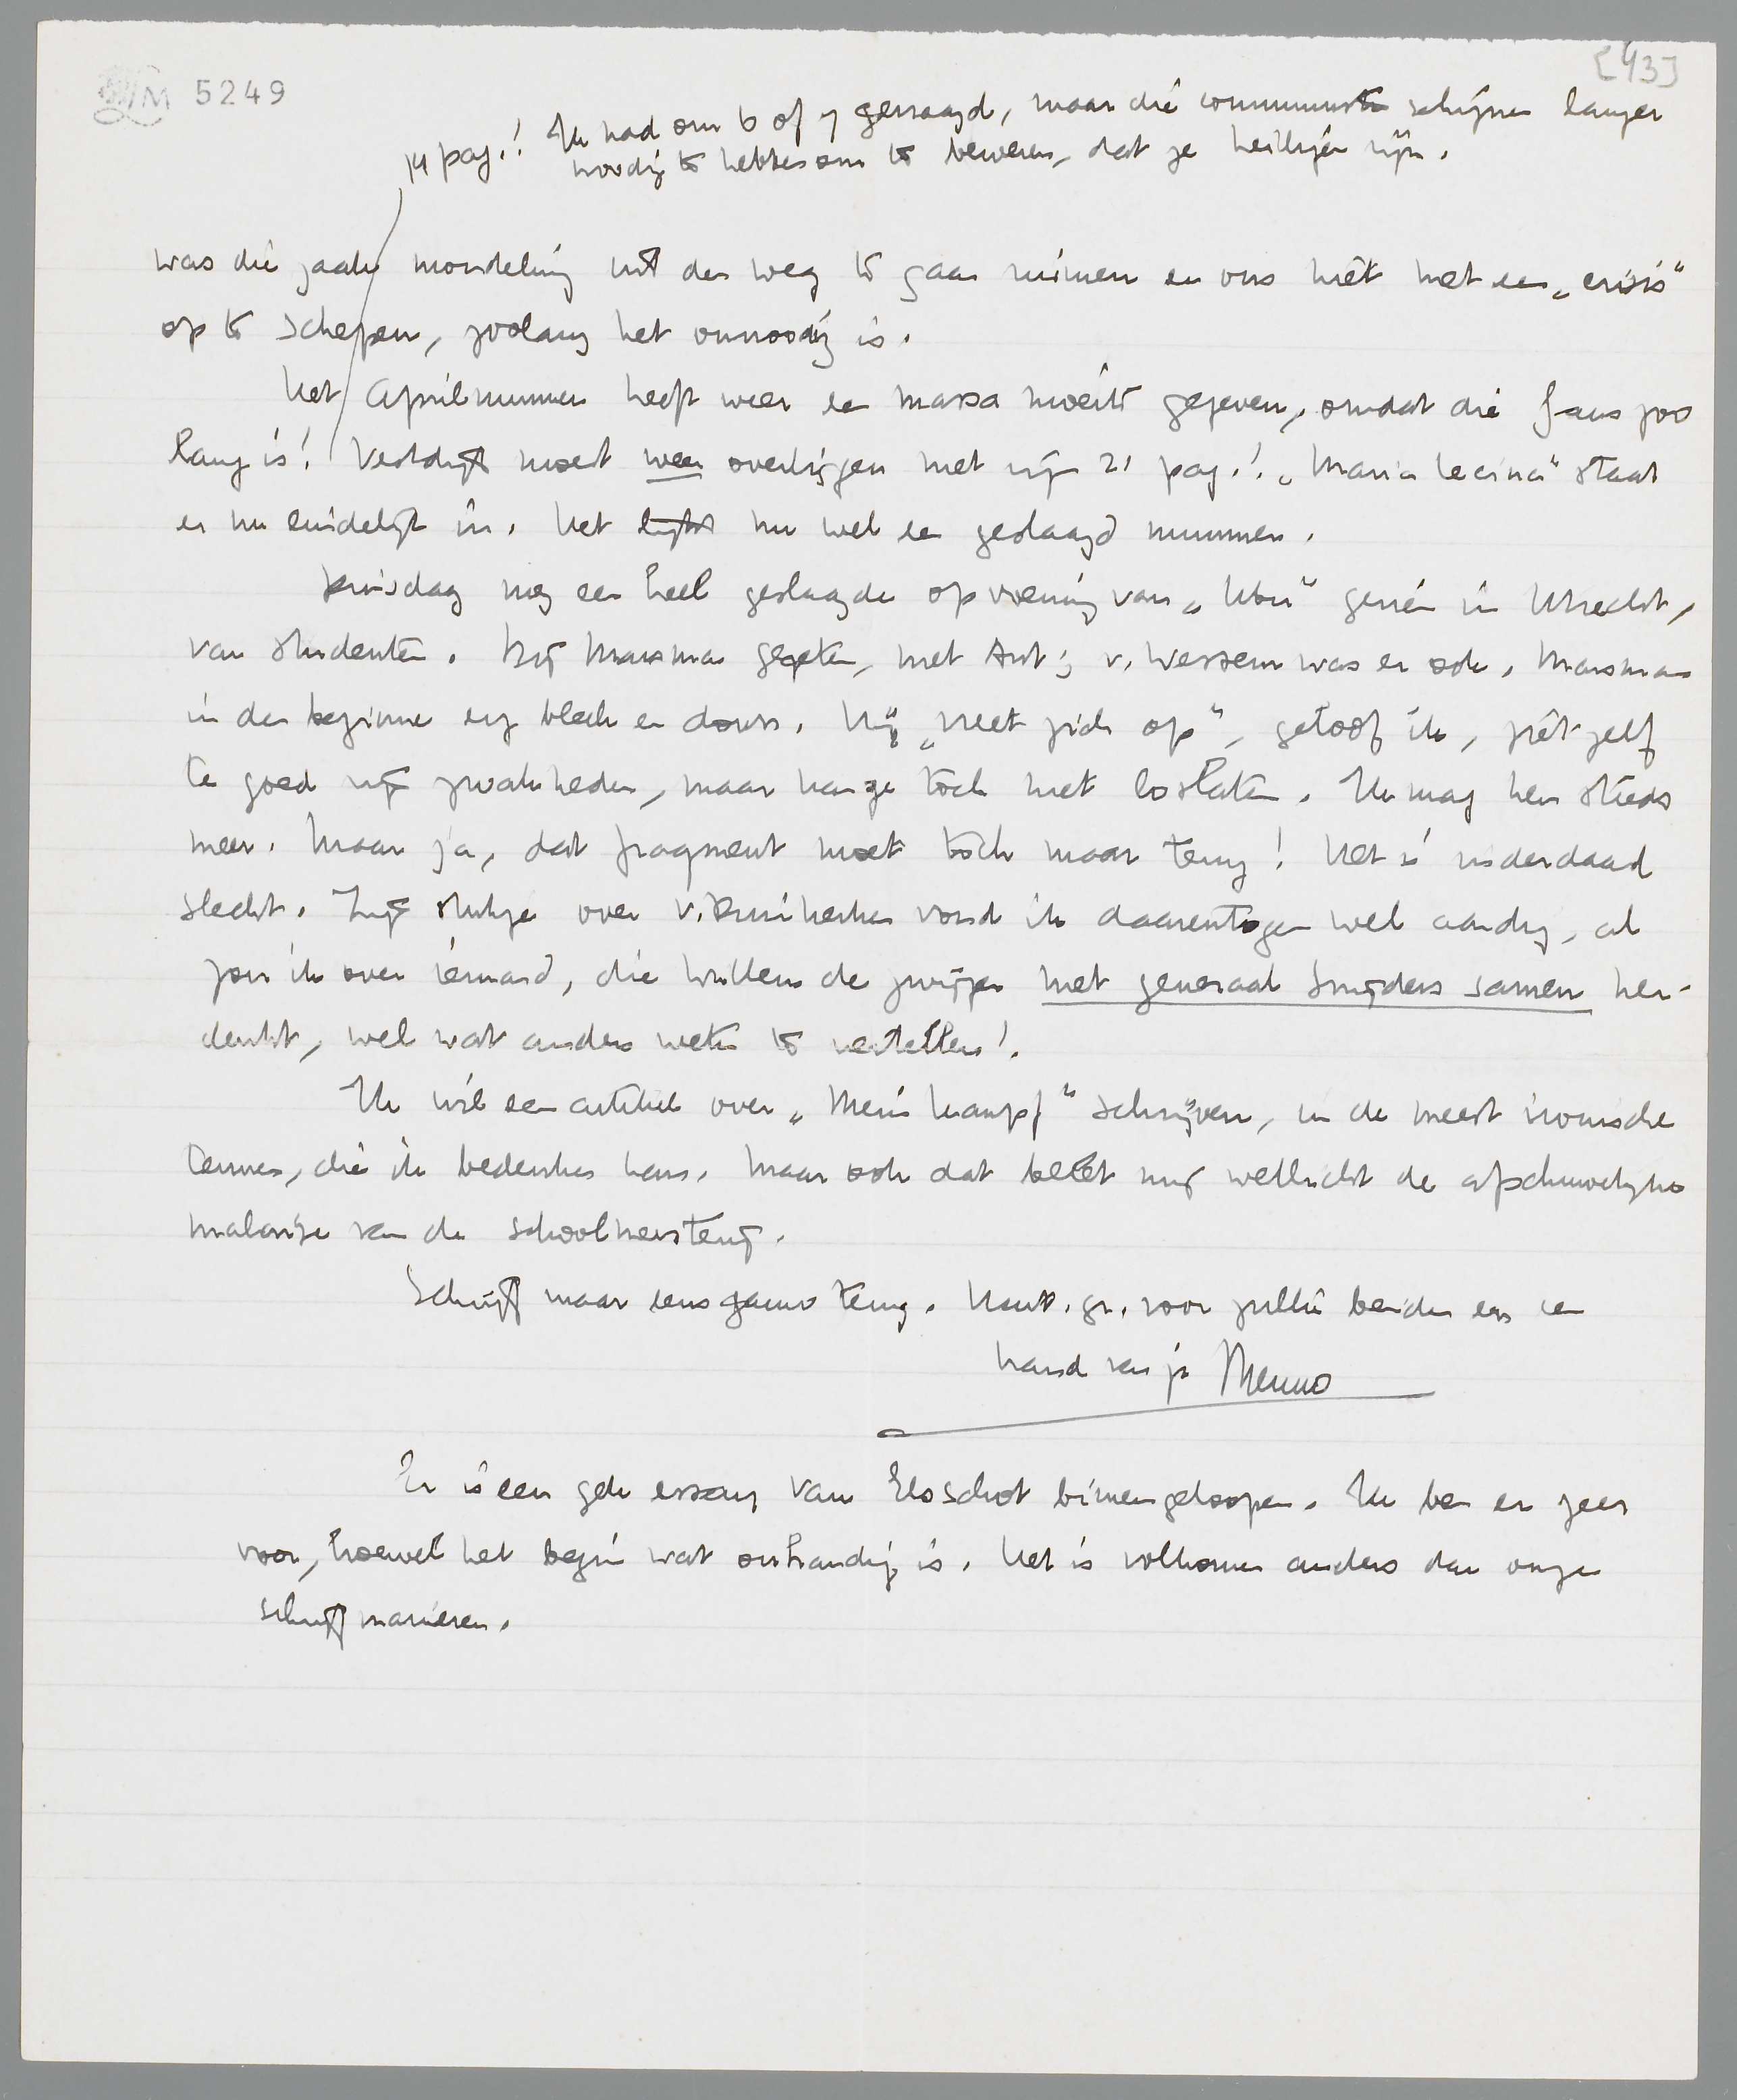 LM 5249
[43]
14 pag.! Ik had om 6 of 7 gevraagd, maar die communisten schijnen langer
noodig te hebben om te beweren, dat ze heiligen zijn.
was die zaak mondeling uit den weg te gaan ruimen en ons niet met een „crisis"
op te schepen, zoolang het onnoodig is.
Het Aprilnummer heeft weer een massa moeite gegeven, omdat die Gans zoo
lang is! Vestdijk moest weer overliggen met zijn 21 pag.! „Maria Lecina" staat
er nu eindelijk in. Het lijkt nu wel een geslaagd nummer.
Dinsdag nog een heel geslaagde opvoering van „Ubu" gezien in Utrecht,
van studenten. Bij Marsman gegeten, met Ant; v. Wessem was er ook. Marsman
in den beginne erg bleek en down. Hij „vreet zich op", geloof ik, ziet zelf
te goed zijn zwakheden, maar kan ze toch niet loslaten. Ik mag hem steeds
meer. Maar ja, dat fragment moet toch maar terug! Het is inderdaad
slecht. Zijn stukje over v. Duinkerken vond ik daarentegen wel aardig, al
zou ik over iemand, die Willem de Zwijger met generaal Snijders samen her-
denkt, wel wat anders weten te vertellen!
Ik wil een artikel over „Mein Kampf" schrijven, in de meest ironische
termen, die ik bedenken kan. Maar ook dat belet mij wellicht de afschuwelijke
malarije van de schoolmeesterij.
Schrijf maar eens gauw terug. Hart. gr. voor jullie beiden en een
hand van je Menno
Er is een gek essay van Elsschot binnengeloopen. Ik ben er zeer
voor, hoewel het begin wat onhandig is. Het is volkomen anders dan onze
schrijfmanieren.